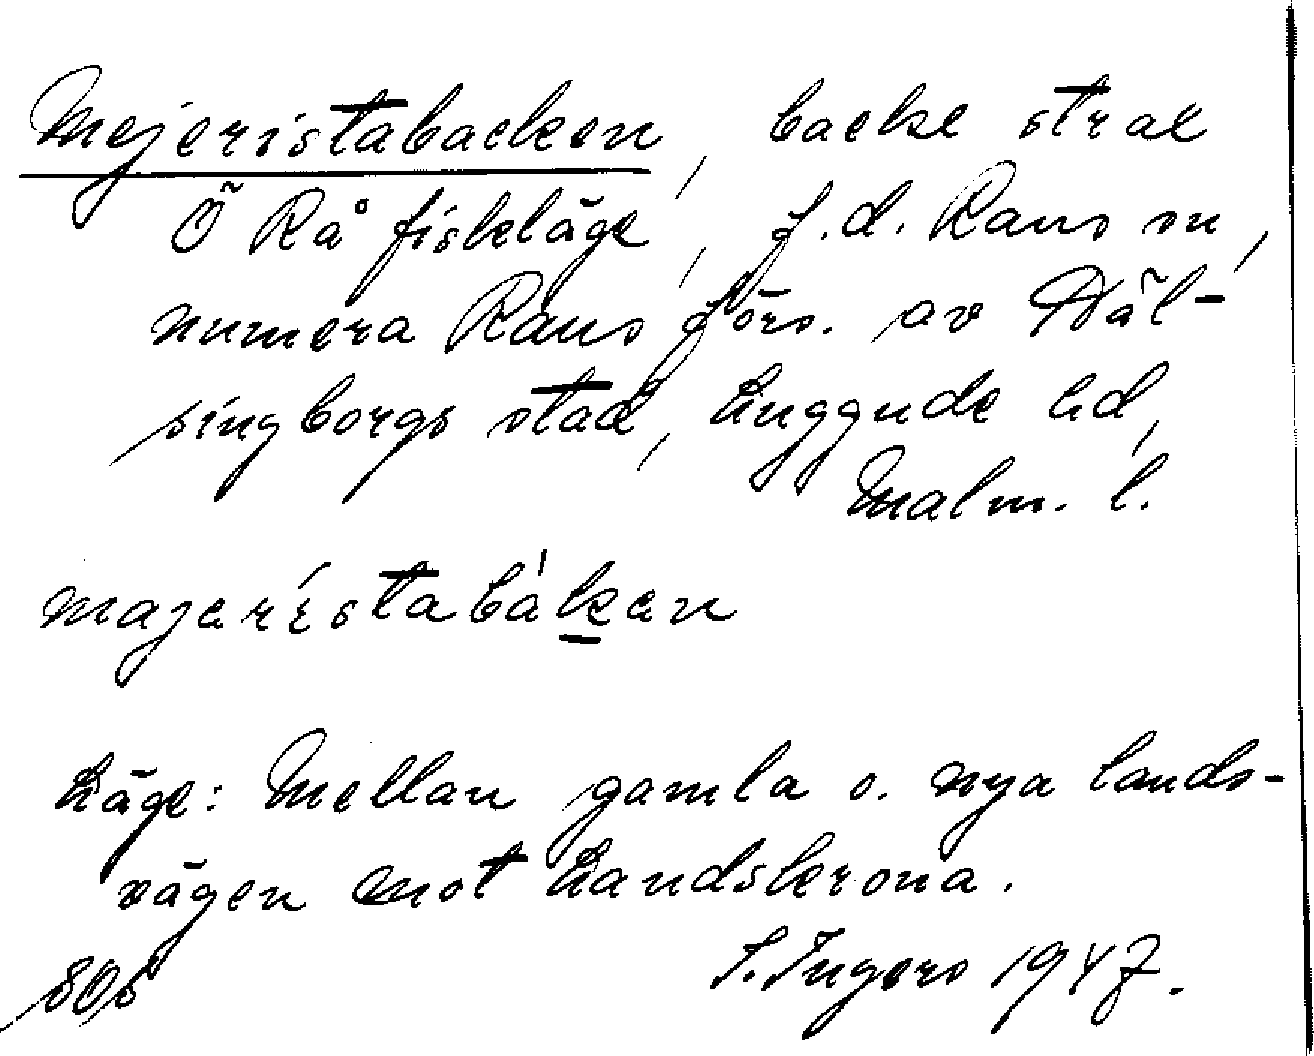 Mejeristabacken, backe strax
Ö Rå fiskeläge, f.d. Raus sn,
numera Raus förs. av Häl-
singborgs stad, Luggude hd,
Malm. l.
majeréstabák̲an
Läge: Mellan gamla o. nya lands-
vägen mot Landskrona.
I. Ingers 1947.